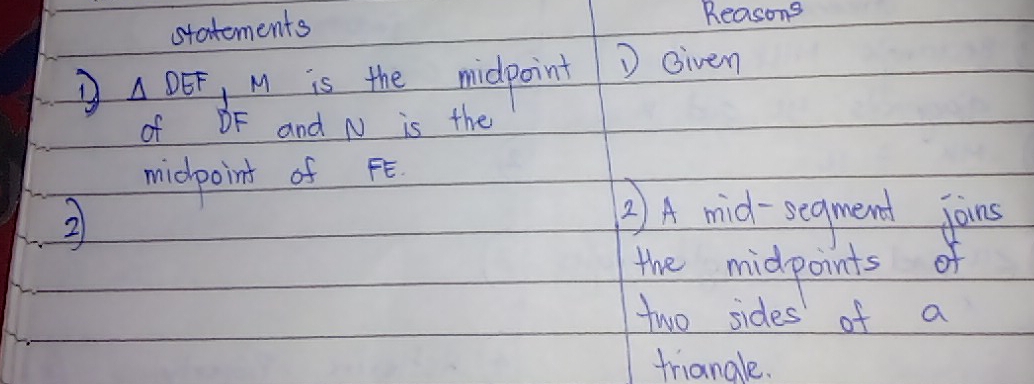 statements
Reasons
1) Δ DEF, M is the midpoint
of DF and N is the
midpoint of FE.
1) Given
2)
2) A mid-segment joins
the midpoints of
two sides of a
triangle.